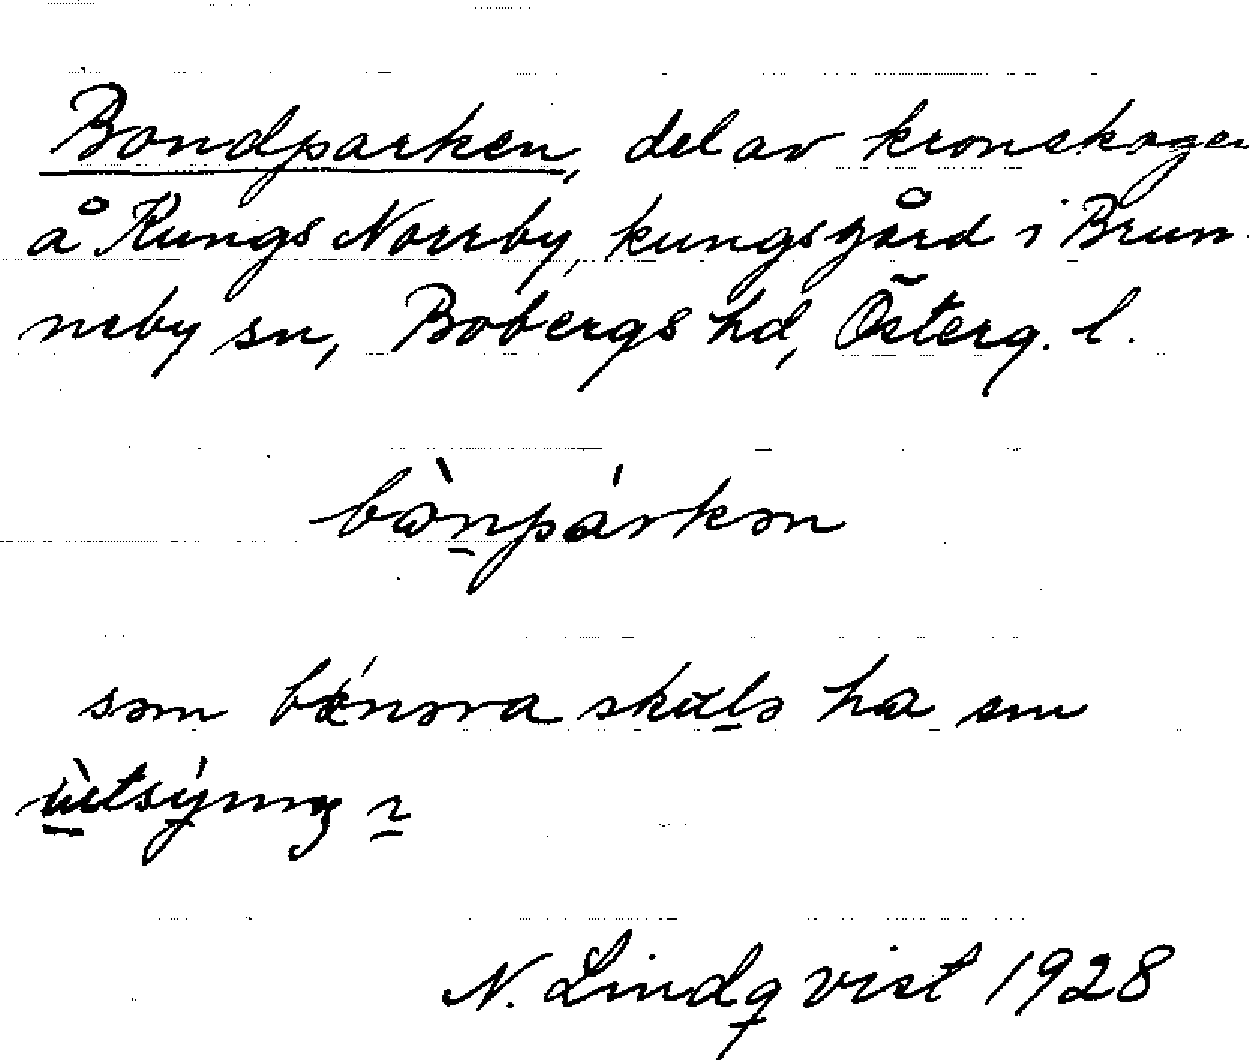 Bondparken, del av kronskogen
å Kungs Norrby, kungsgård i Brun-
neby sn, Bobergs hd, Österg. l.
bò̠npárkən
som bǿnəra skulə ha sm
ù̠tsýnıŋ ı̠
N. Lindqvist 1928